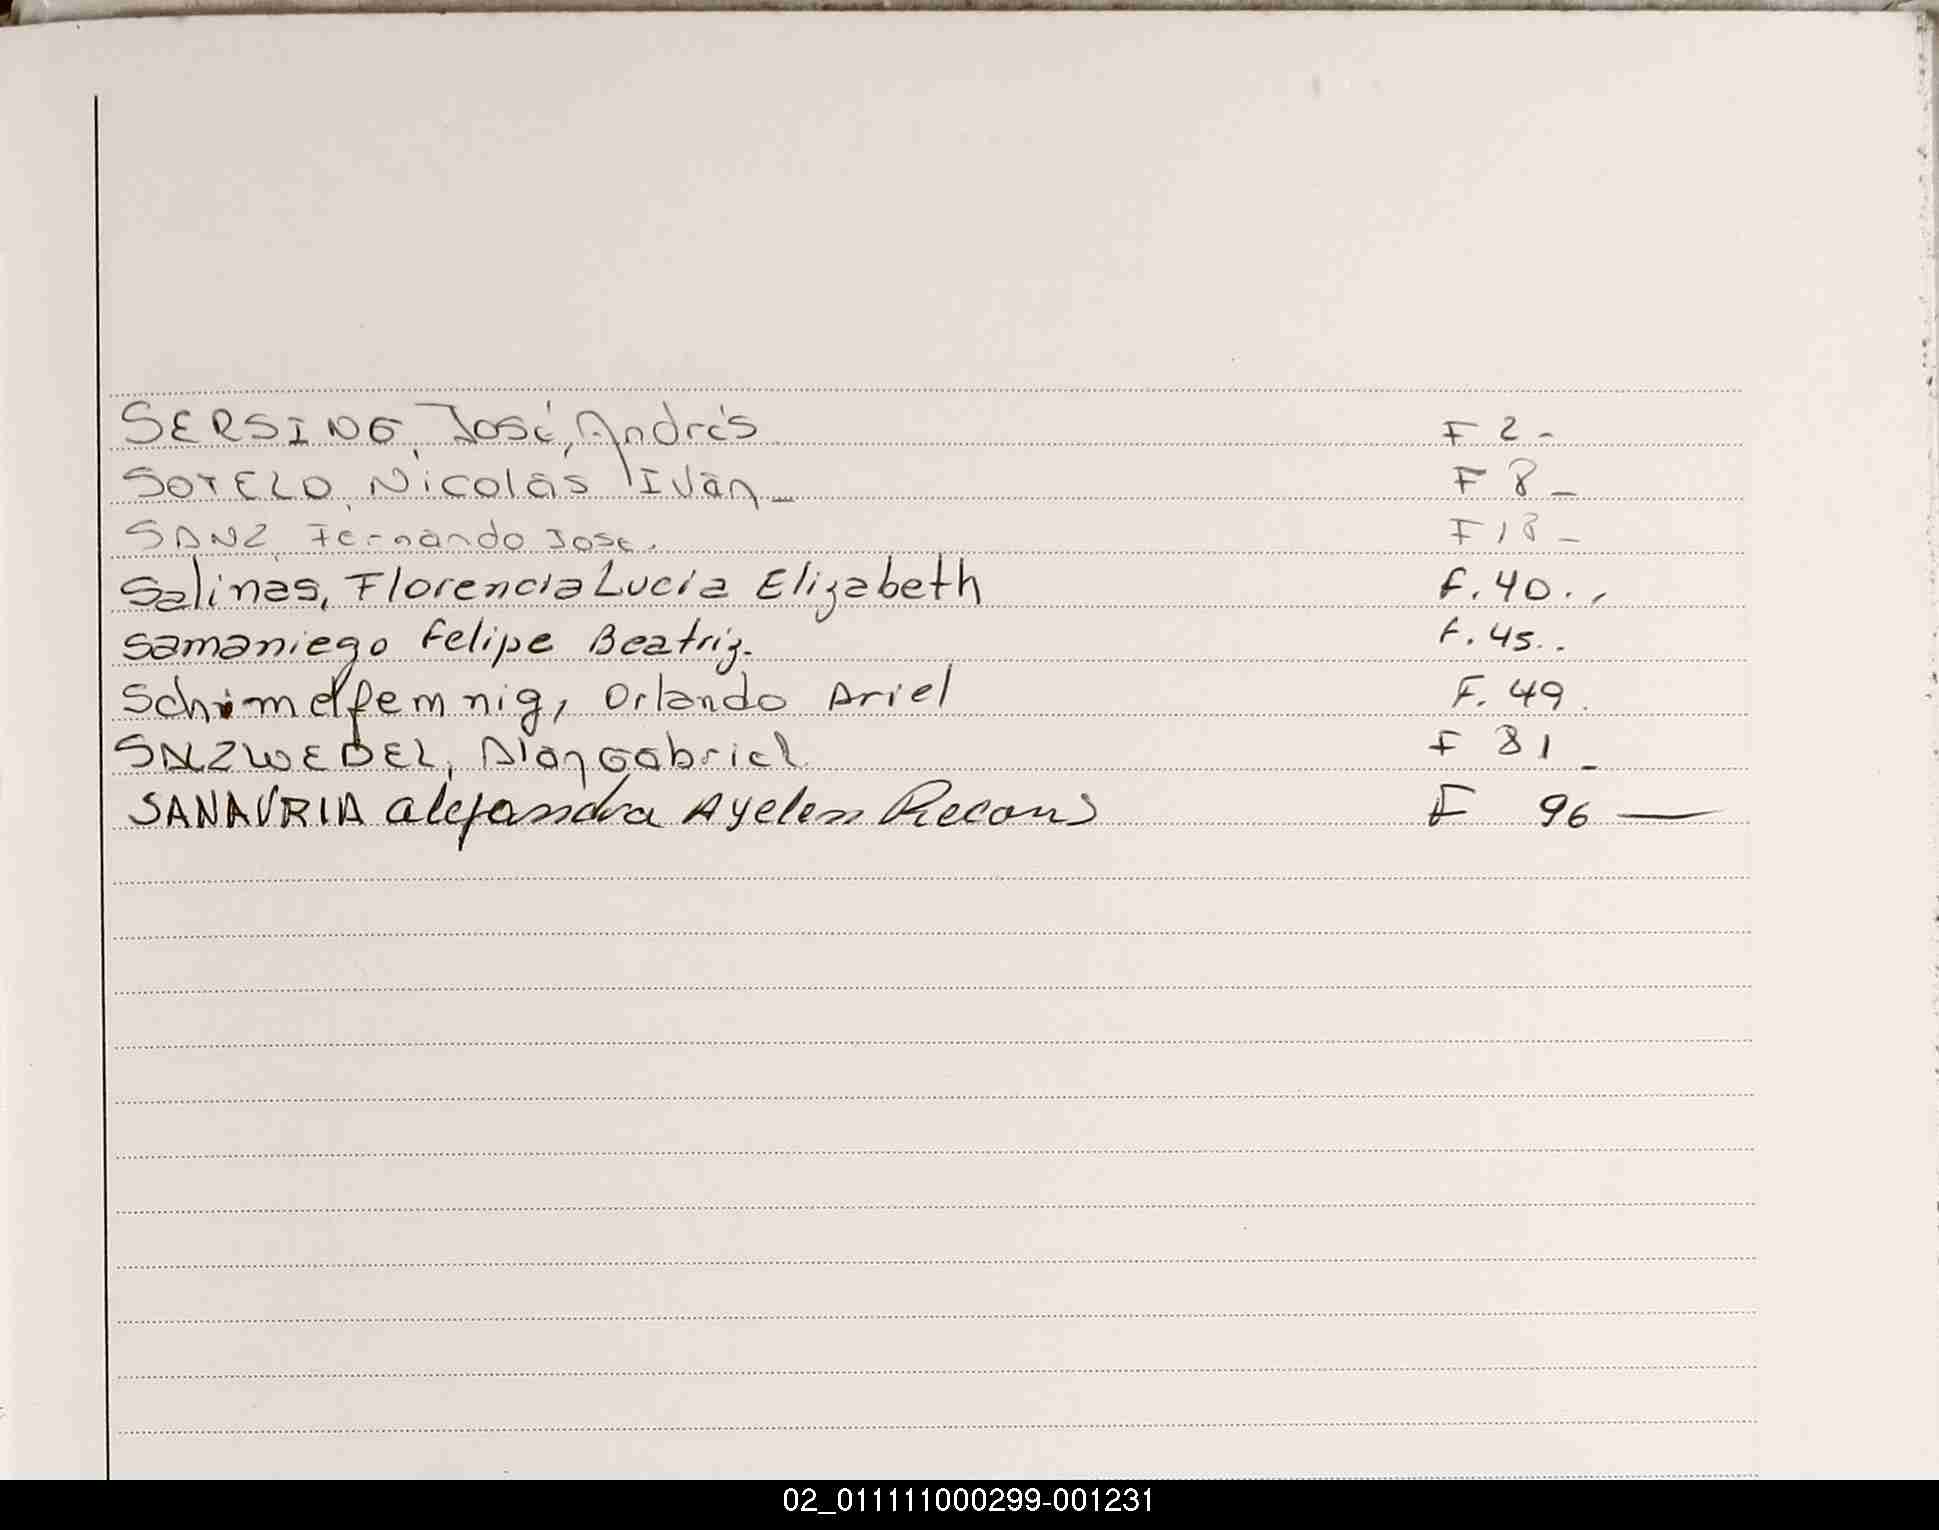 SERSING, José, Andrés F 2-
SOTELO, Nicolás Iván_ F 8_
SANZ, Fernando José. F 18_
Salinas, Florencia Lucía Elizabeth F.40..
Samaniego Felipe Beatriz. F.45..
Schimelfemnig, Orlando Ariel F.49.
SALZWEDEL, Alan Gabriel F 81_
SANAVRIA Alejandra Ayelen Recons F 96—
02_011111000299-001231